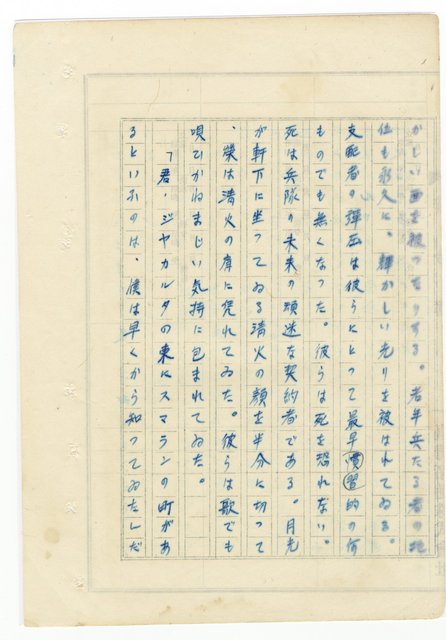 かしい面を被つたりする。老年兵たる者の地
位も永久に、輝かしい光りを被はれてゐる。
支配者の弾圧は彼らにとつて最早慣習的の何
ものでも無くなつた。彼らは死を恐れない。
死は兵隊の未来の頑迷な契約者である。月光
が軒下に坐つてゐる清火の顔を半分に切つて
、榮は清火の肩に凭れてゐた。彼らは歌でも
唄ひかねまじい気持に包まれてゐた。
「君・ジヤカルタの東にスマランの町があ
るといふのは、僕は早くから知つてゐたしだ